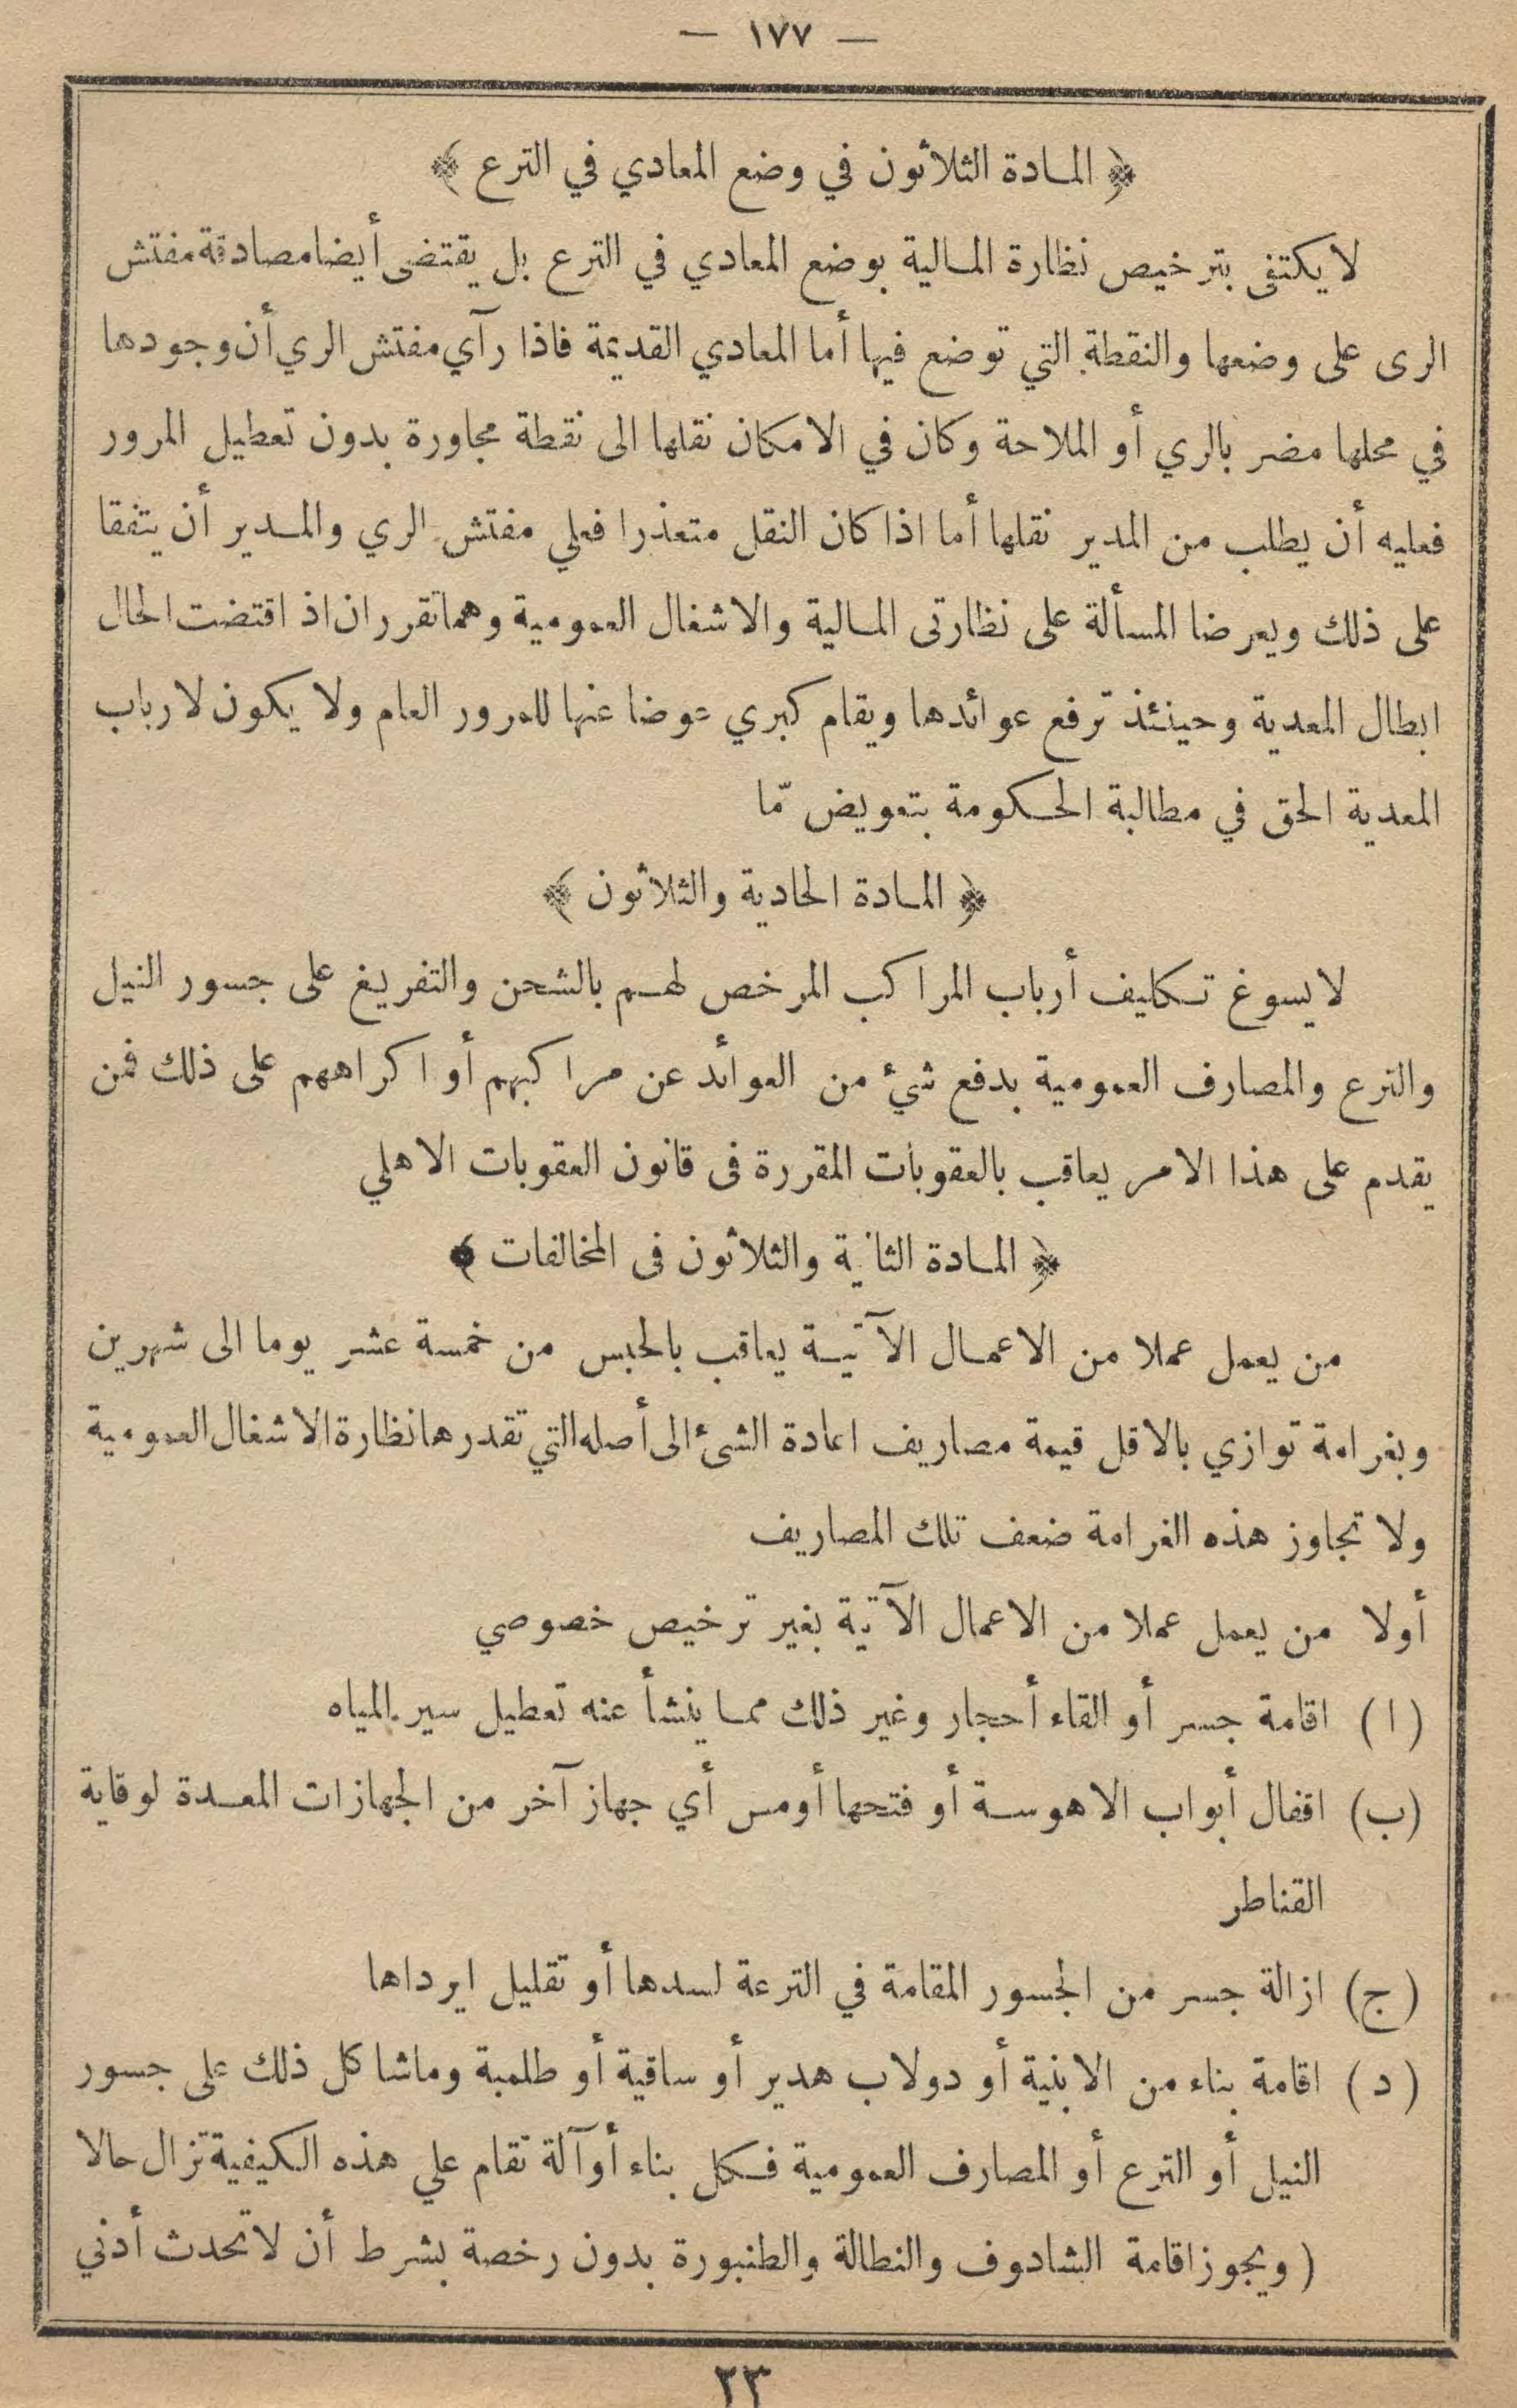 — ١٧٧ —
﴿ المادة الثلاثون في وضع المعادي في الترع ﴾
لا يكتفى بترخيص نظارة المالية بوضع المعادي في الترع بل يقتضى أيضا مصادقة مفتش
الرى على وضعها والنقطة التي توضع فيها أما المعادي القديمة فاذا رآي مفتش الري أن وجودها
في محلها مضر بالري أو الملاحة وكان في الامكان نقلها الى نقطة مجاورة بدون تعطيل المرور
فعليه أن يطلب من المدير نقلها أما اذا كان النقل متعذرا فعلي مفتش الري والمدير أن يتفقا
على ذلك ويعرضا المسألة على نظارتى المالية والاشغال العمومية وهما تقرران اذ اقتضت الحال
ابطال المعدية وحينئذ ترفع عوائدها ويقام كبري عوضا عنها للمرور العام ولا يكون لارباب
المعدية الحق في مطالبة الحكومة بتعويض مّا
﴿ المادة الحادية والثلاثون ﴾
لا يسوغ تكليف أرباب المراكب المرخص لهم بالشحن والتفريغ على جسور النيل
والترع والمصارف العمومية بدفع شئ من العوائد عن مراكبهم أو اكراههم على ذلك فمن
يقدم على هذا الامر يعاقب بالعقوبات المقررة فى قانون العقوبات الاهلي
﴿ المادة الثانية والثلاثون فى المخالفات ﴾
من يعمل عملا من الاعمال الآتية يعاقب بالحبس من خمسة عشر يوما الى شهرين
وبغرامة توازي بالاقل قيمة مصاريف اعادة الشئ الى أصله التي تقدرها نظارة الاشغال العمومية
ولا تجاوز هذه الغرامة ضعف تلك المصاريف
أولا من يعمل عملا من الاعمال الآتية بغير ترخيص خصوصي
(ا) اقامة جسر أو القاء أحجار وغير ذلك مما ينشأ عنه تعطيل سير المياه
(ب) اقفال أبواب الاهوسة أو فتحها أو مس أي جهاز آخر من الجهازات المعدة لوقاية
القناطر
(ج) ازالة جسر من الجسور المقامة في الترعة لسدها أو تقليل ايرداها
(د) اقامة بناء من الابنية أو دولاب هدير أو ساقية أو طلمبة وما شاكل ذلك على جسور
النيل أو الترع أو المصارف العمومية فكل بناء أو آلة تقام علي هذه الكيفية تزال حالا
( ويجوز اقامة الشادوف والنطالة والطنبورة بدون رخصة بشرط أن لا تحدث أدني
٢٣